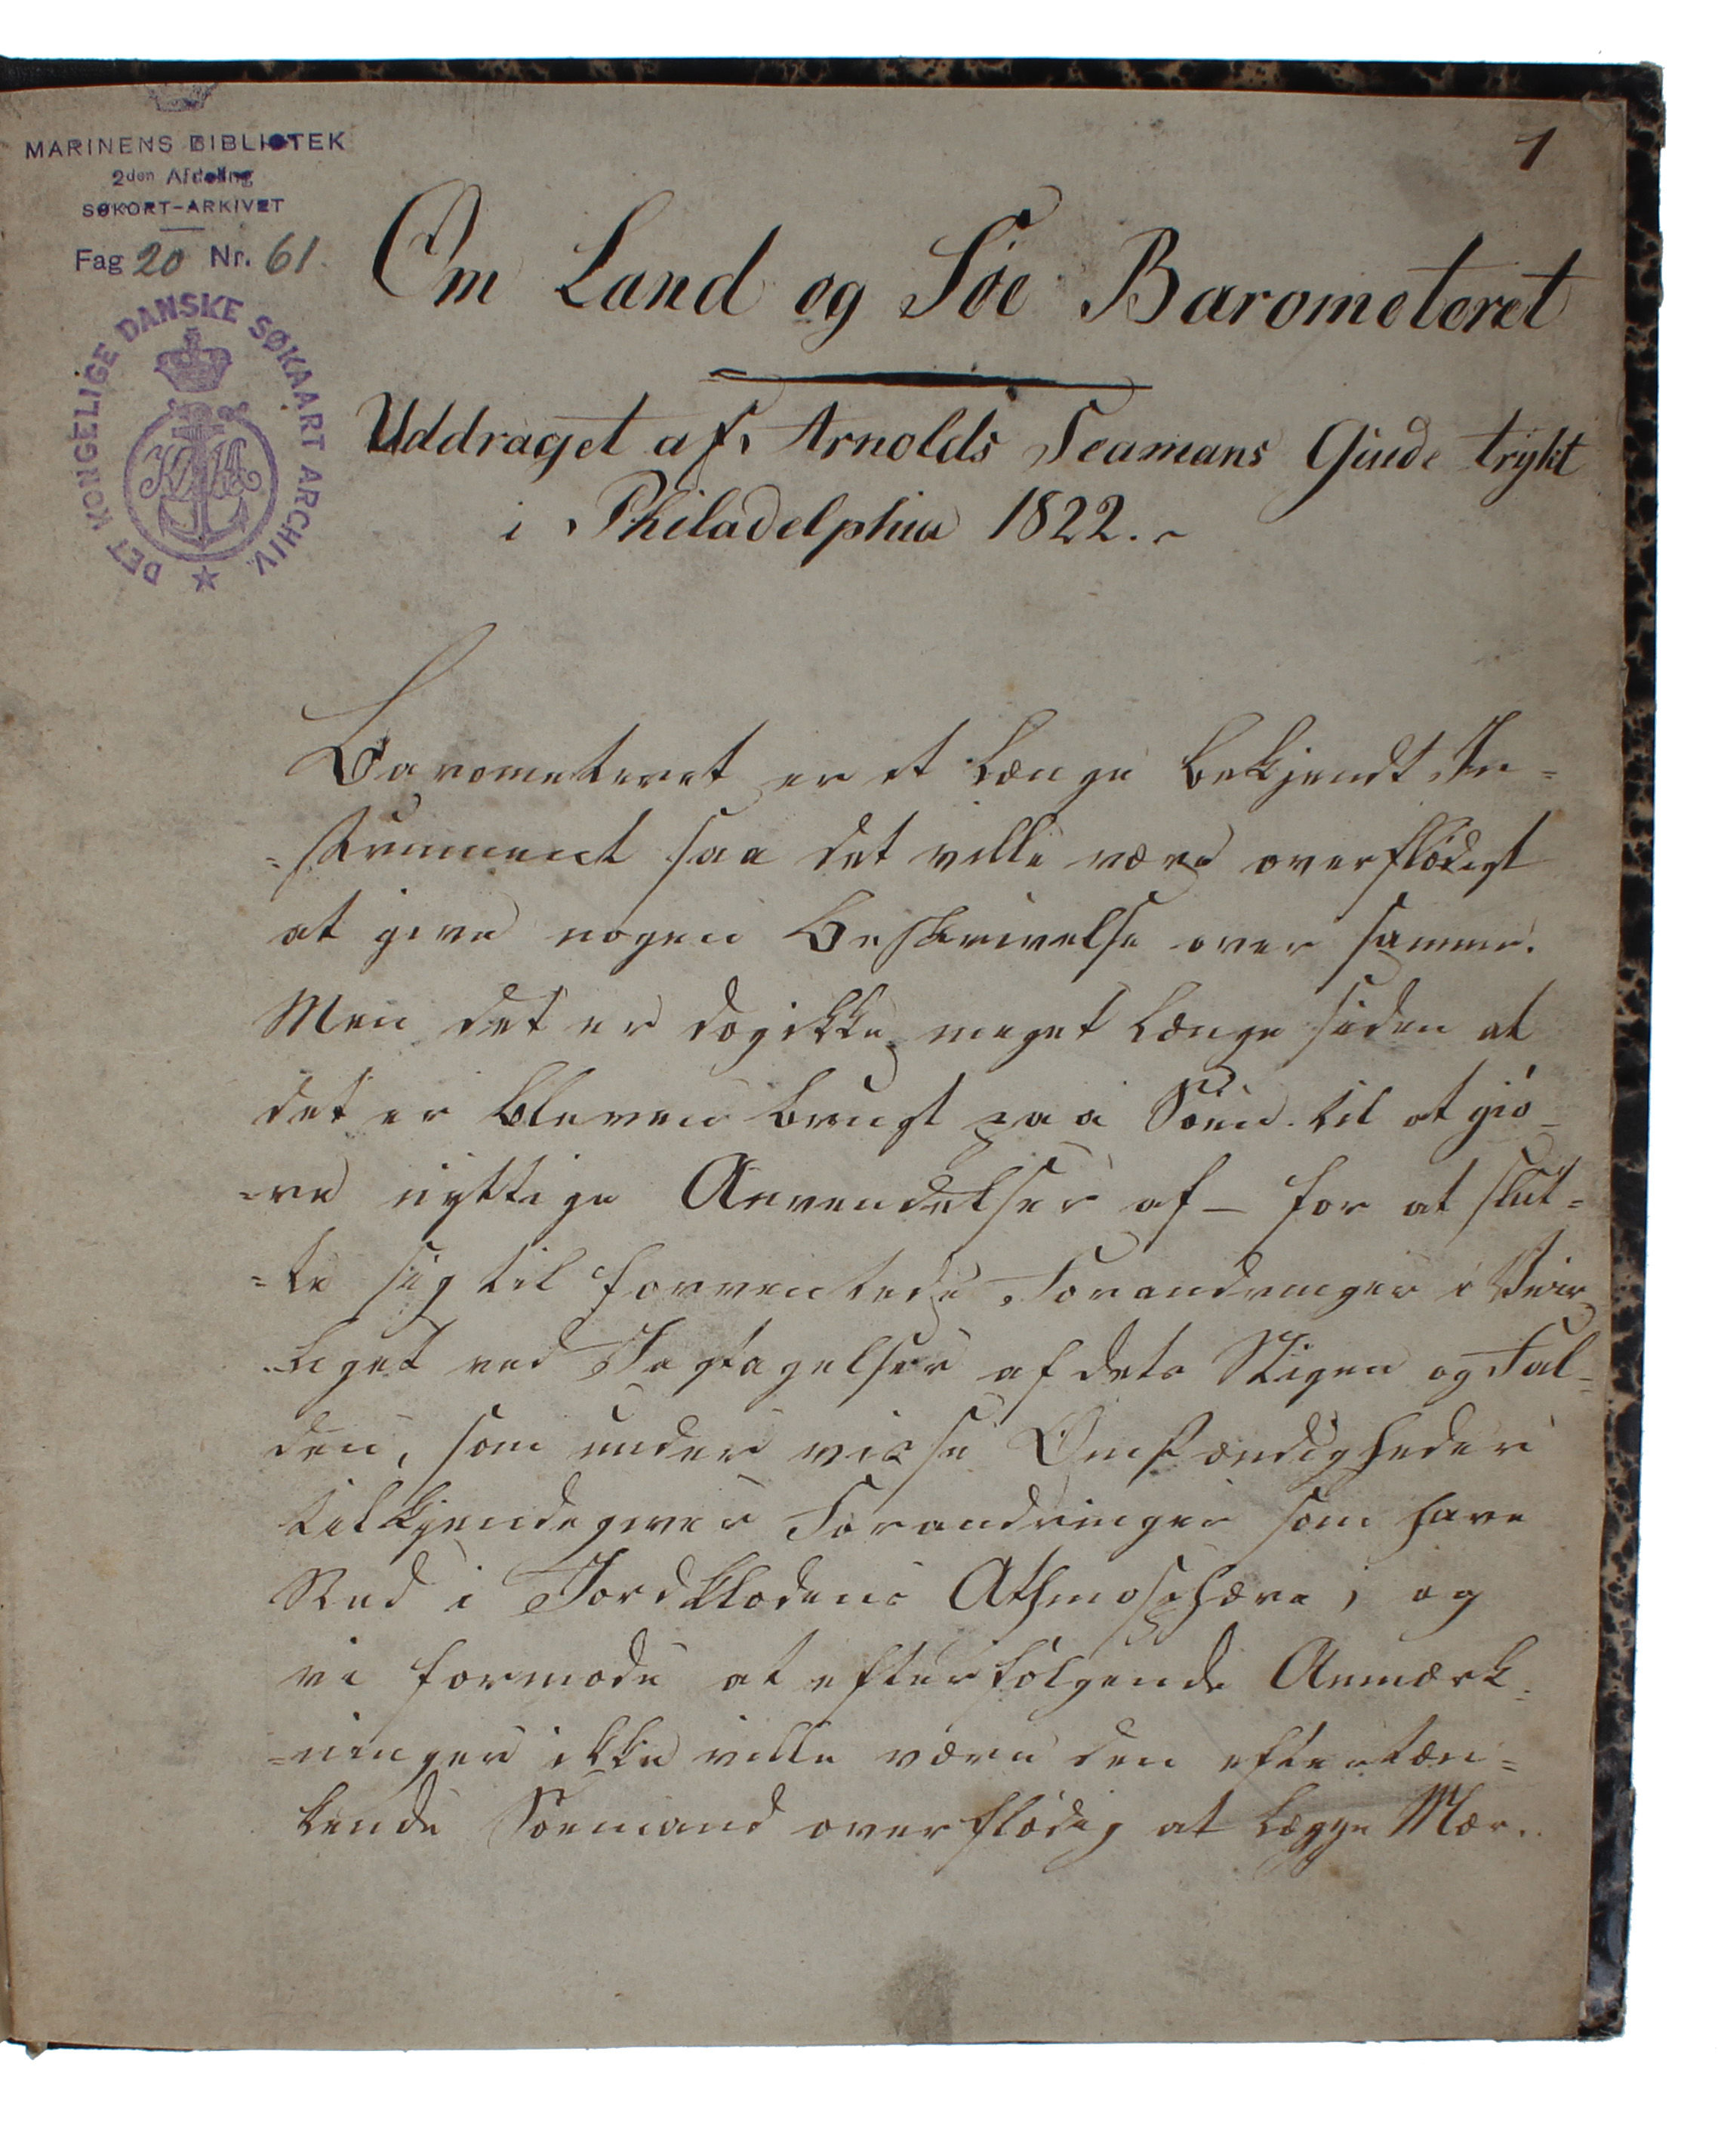 1
MARINENS BIBLIOTEK
2den Afdeling
SØKORT-ARKIVET
Fag 20 Nr. 61.
DET KONGELIGE DANSKE SØKAART ARCHIV.
Om Land og Söe Barometeret
Uddraget af Arnolds Seamans Giude trykt
i Philadelphia 1822.
Barometeret er et længe bekjendt In=
=strument saa det ville være overflödigt
at give nogen Beskrivelse over samme.
Men det er dog ikke meget længe siden at
det er bleven brugt paa Söen til at giö=
=re nyttige Anvendelser af – for at slut=
=te sig til forventede Forandringer i Veir
=liget ved Jagtagelser af dets Stigen og Fal=
den, som under visse Omstændigheder
tilkjendegiver Forandringer som have
Sted i Jordklodens Athmosphære; og
vi formode at efterfölgende Anmærk=
=ninger ikke ville være den eftertæn=
kende Söemand overflödig at lægge Mær..